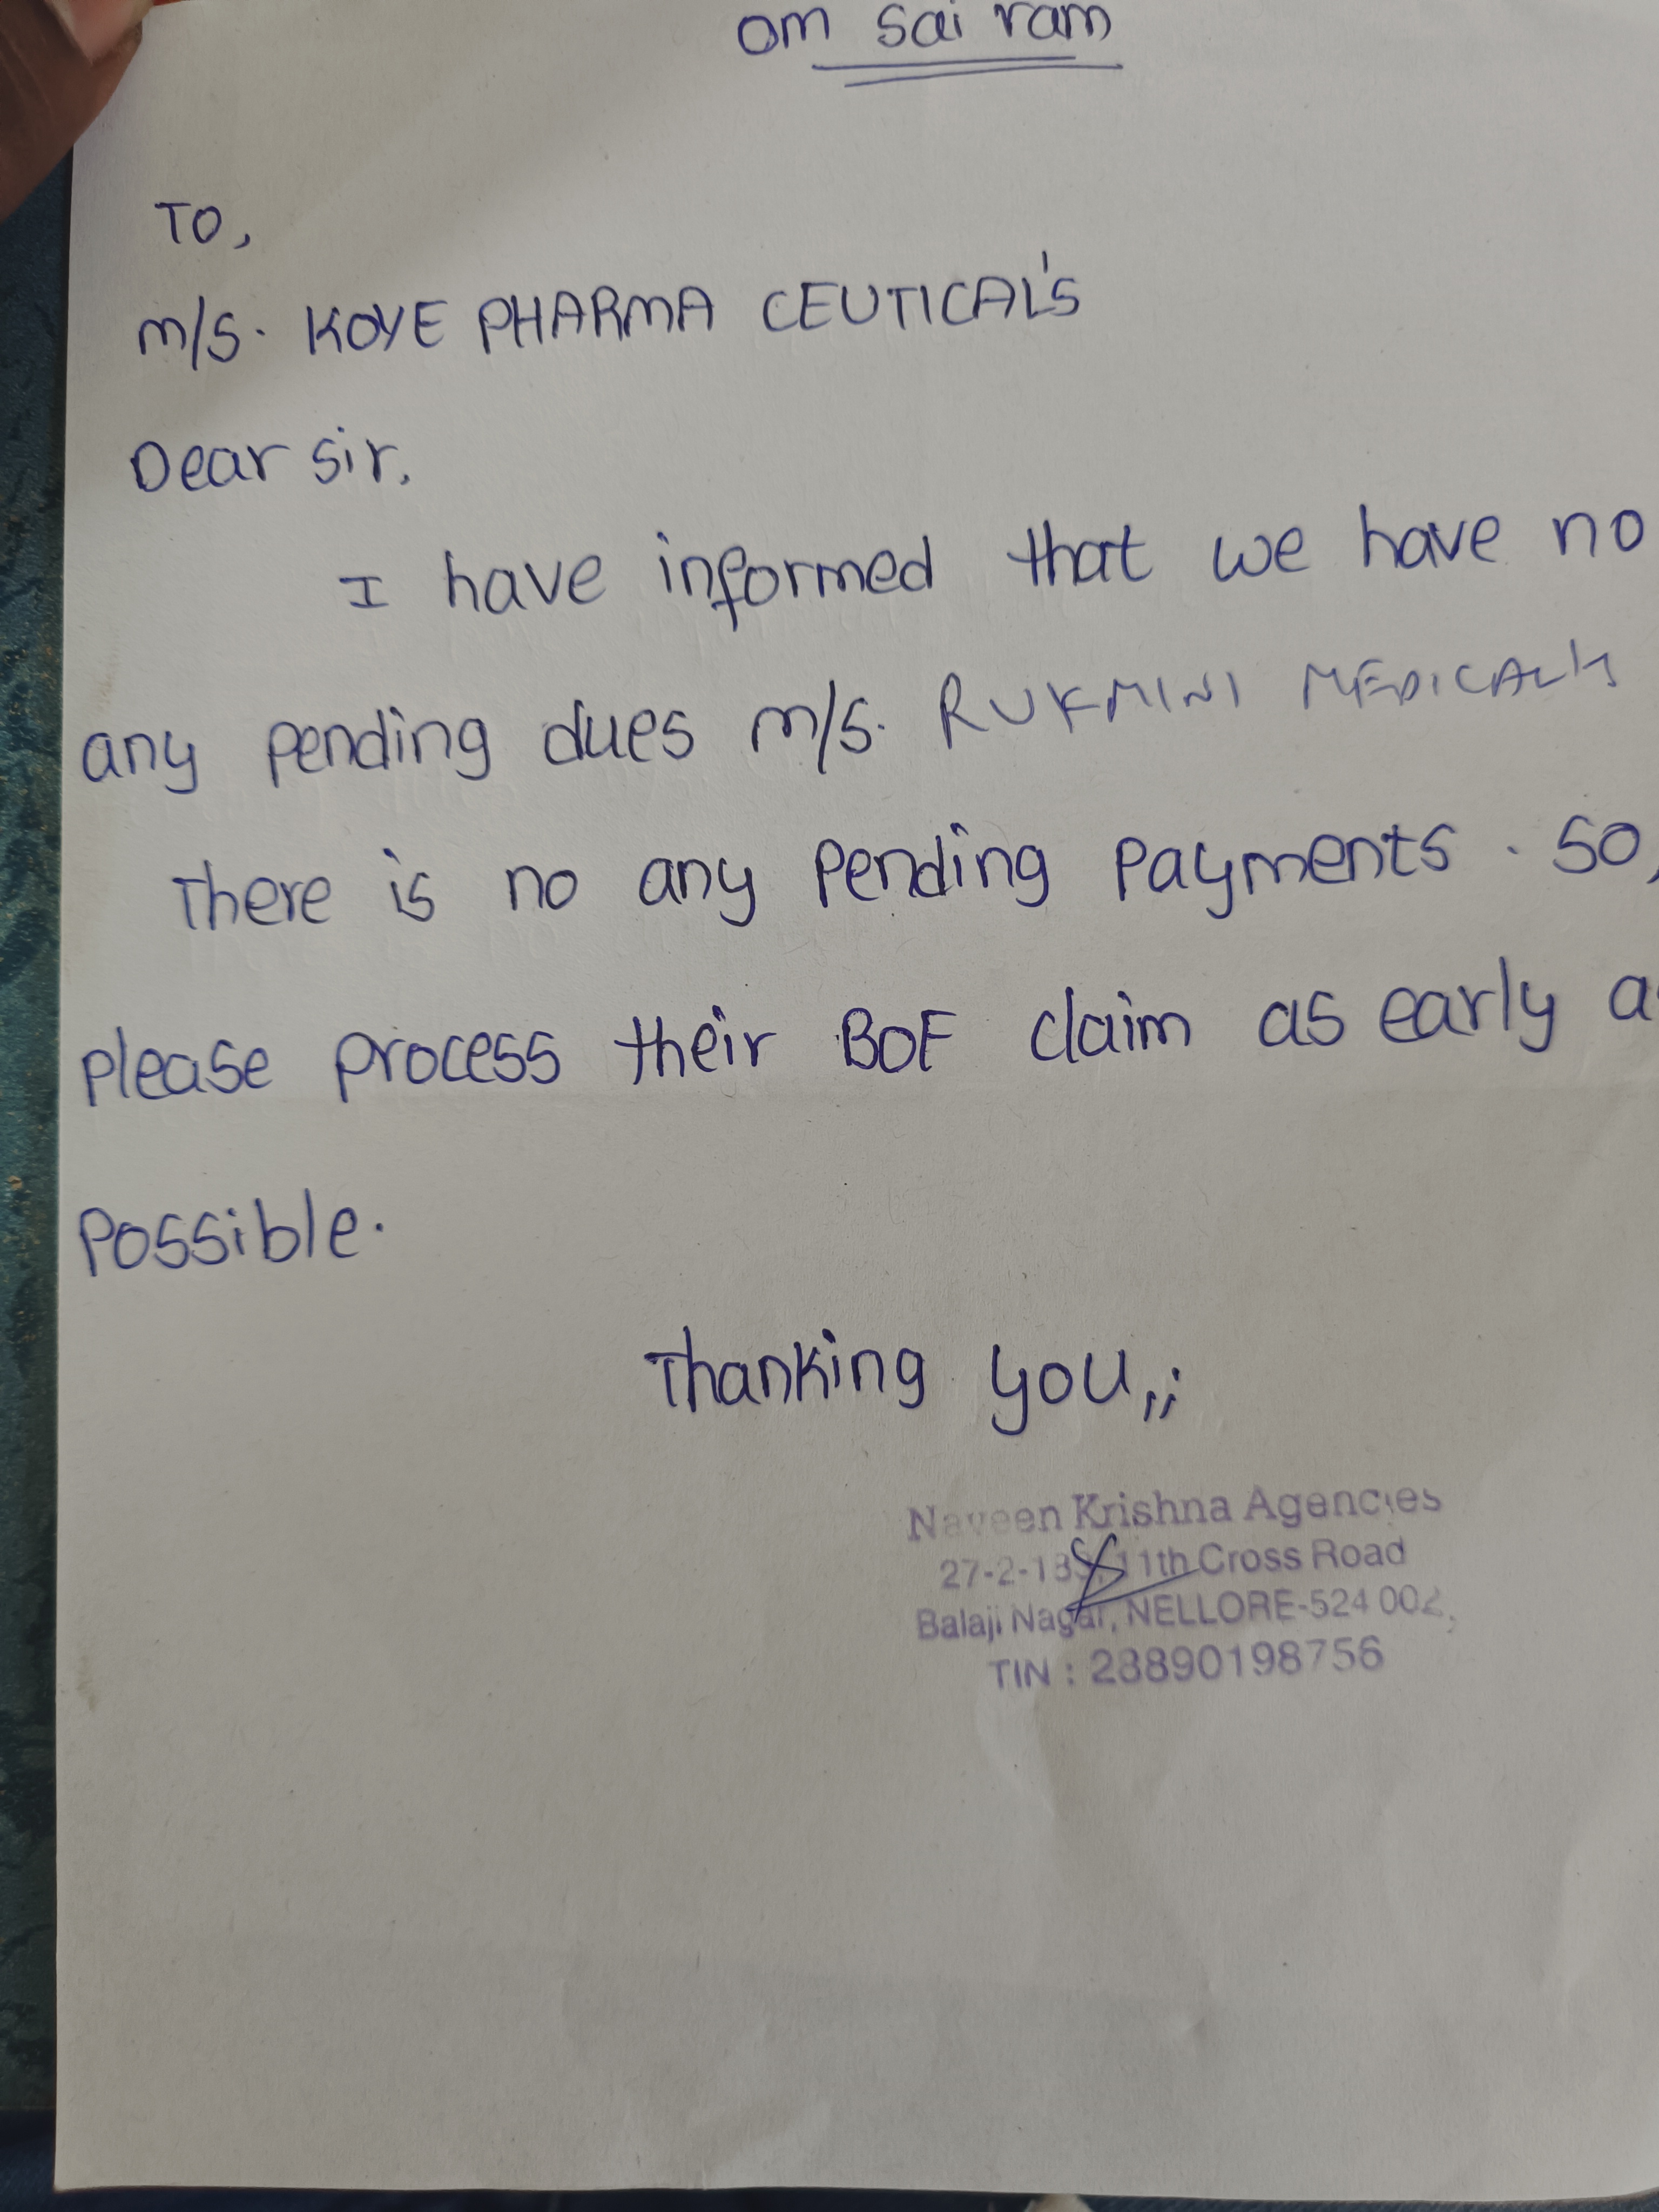 om sai ram
TO,
M/S. KOYE PHARMA CEUTICAL'S
Dear sir,
I have informed that we have no
any pending dues M/S. RUKMINI MEDICAL'S
There is no any pending payments. So,
please process their BOE claim as early as
possible.
Thanking you,,;
Naveen Krishna Agencies
27-2-189, 11th Cross Road
Balaji Nagar, NELLORE-524 002,
TIN : 28890198756